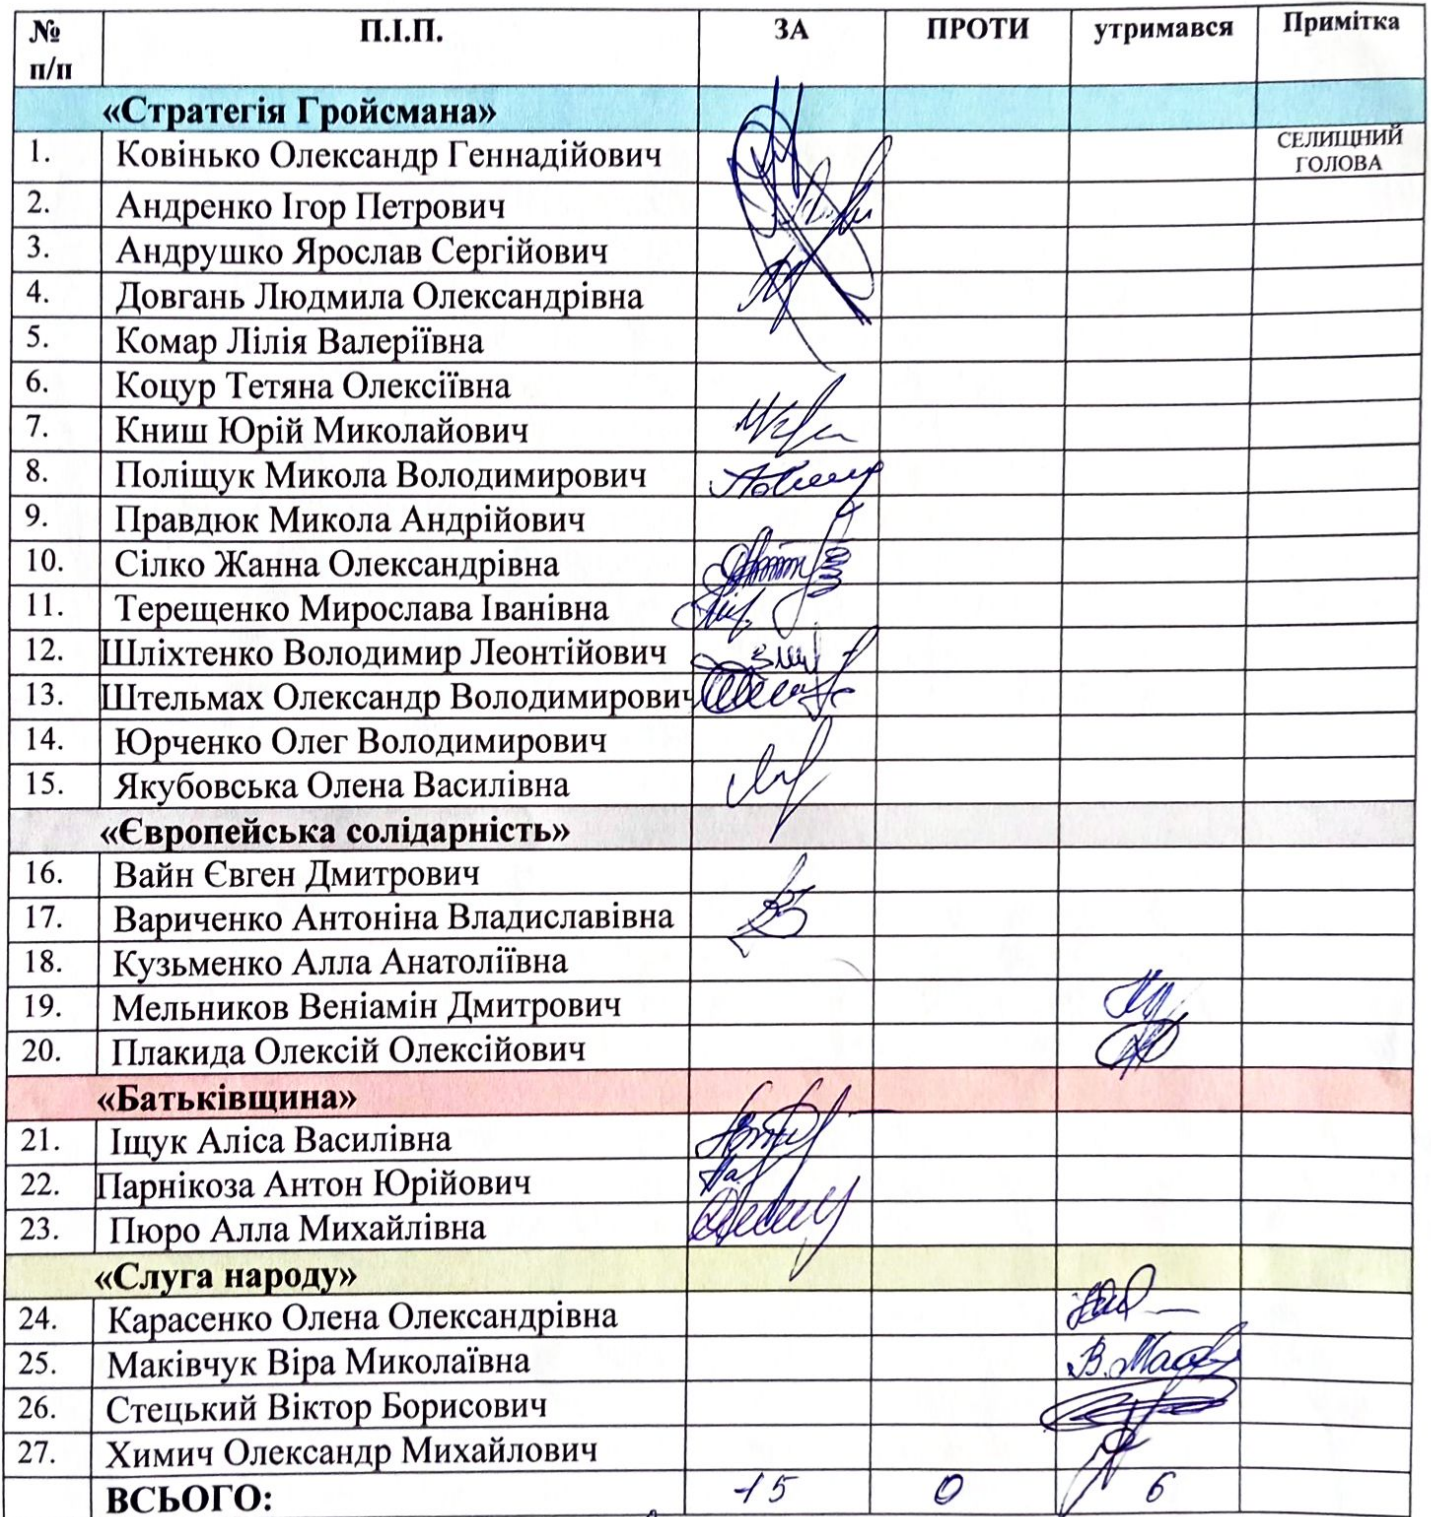 № п/п П.І.П. ЗА ПРОТИ утримався Примітка
«Стратегія Гройсмана»
1. Ковінько Олександр Геннадійович СЕЛИЩНИЙ ГОЛОВА
2. Андренко Ігор Петрович
3. Андрушко Ярослав Сергійович
4. Довгань Людмила Олександрівна
5. Комар Лілія Валеріївна
6. Коцур Тетяна Олексіївна
7. Книш Юрій Миколайович
8. Поліщук Микола Володимирович
9. Правдюк Микола Андрійович
10. Сілко Жанна Олександрівна
11. Терещенко Мирослава Іванівна
12. Шліхтенко Володимир Леонтійович
13. Штельмах Олександр Володимирович
14. Юрченко Олег Володимирович
15. Якубовська Олена Василівна
«Європейська солідарність»
16. Вайн Євген Дмитрович
17. Вариченко Антоніна Владиславівна
18. Кузьменко Алла Анатоліївна
19. Мельников Веніамін Дмитрович
20. Плакида Олексій Олексійович
«Батьківщина»
21. Іщук Аліса Василівна
22. Парнікоза Антон Юрійович
23. Пюро Алла Михайлівна
«Слуга народу»
24. Карасенко Олена Олександрівна
25. Маківчук Віра Миколаївна
26. Стецький Віктор Борисович
27. Химич Олександр Михайлович
ВСЬОГО: 15 0 6